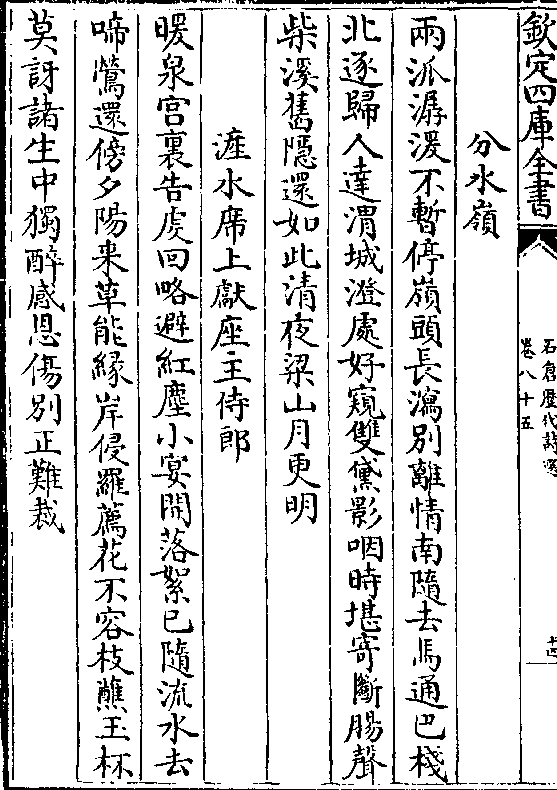 欽定四庫全書
石倉歷代詩選
卷八十五
十四
分水嶺
兩派潺湲不暫停嶺頭長瀉别離情南隨去馬通巴棧
北逐歸人達渭城澄處好窺雙黛影咽時堪寄斷腸聲
柴溪舊隠還如此清夜梁山月更明
滻水席上獻座主侍郎
暖泉宫裏告虔回略避紅塵小宴開落絮已隨流水去
啼鶯還傍夕陽来草能緣岸侵羅薦花不容枝蘸玉杯
莫訝諸生中獨醉感恩傷别正難裁